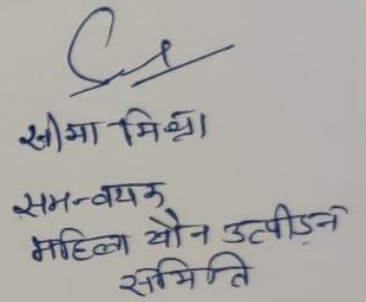 सीमा मिश्रा
समन्वयक
महिला यौन उत्पीड़न
समिति